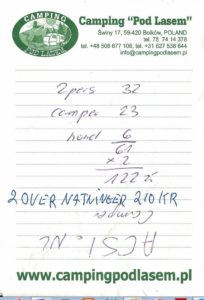 CAMPING
POD LASEM
Camping "Pod Lasem"
Świny 17, 59-420 Bolków, POLAND
tel. 75 74 14 378
tel. +48 508 677 106, tel. +31 627 538 644
info@campingpodlasem.pl
2 pers 32
camper 23
hond 6
61
x 2
122 zł
2 OVERNATNINGER 210 KR
Camper
ACSI NL
www.campingpodlasem.pl